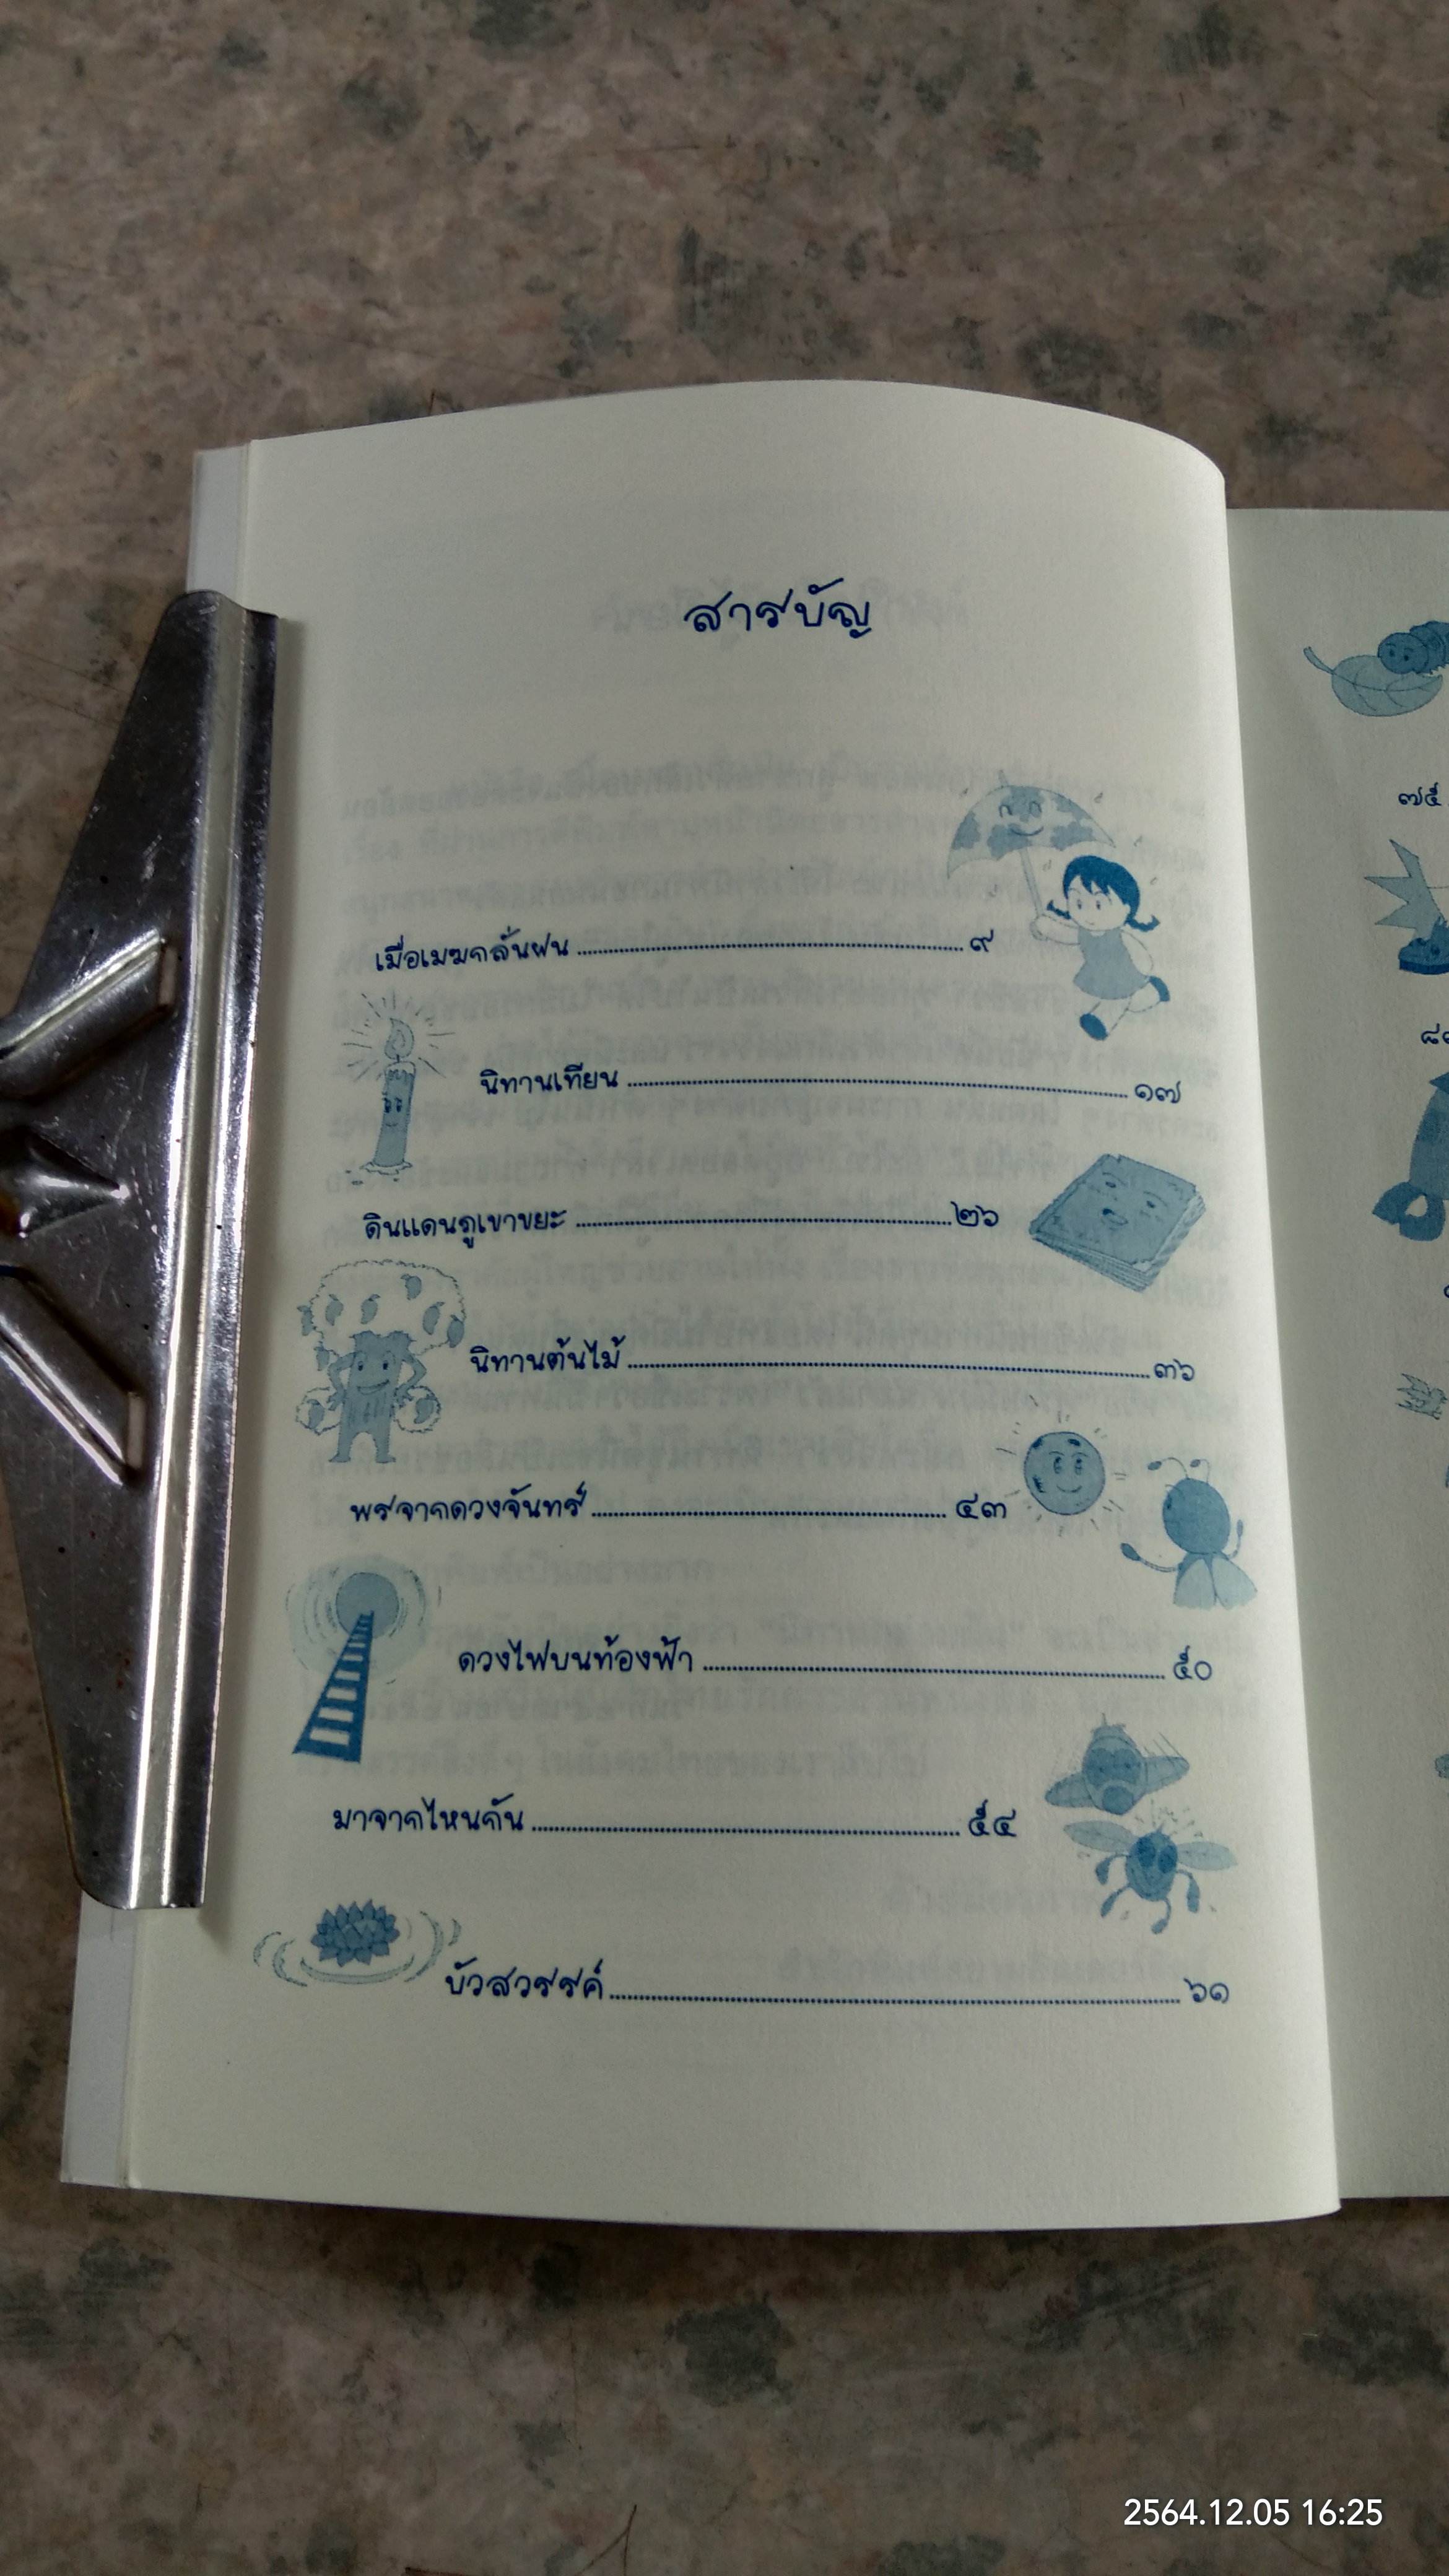 สารบัญ
เมื่อเมฆกลั่นฝน ๙
นิทานเทียน ๑๗
ดินแดนภูเขาขยะ ๒๖
นิทานต้นไม้ ๓๖
พรจากดวงจันทร์ ๔๓
ดวงไฟบนท้องฟ้า ๕๐
มาจากไหนกัน ๕๔
บัวสวรรค์ ๖๑
๗๕
2564.12.05 16:25